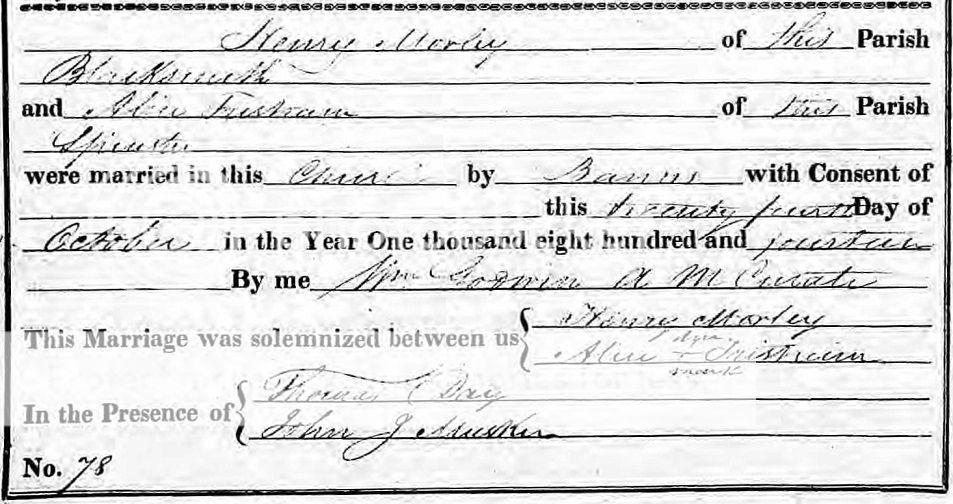 Henry Morley of this Parish
Blacksmith
and Alice Tristram of this Parish
Spinster
were married in this Church by Banns with Consent of
this twenty fourth Day of
October in the Year One thousand eight hundred and fourteen
By me Wm Godwin A M Curate
This Marriage was solemnized between us Henry Morley
Alice + Tristram
mark
In the Presence of Thomas Day
John J Musker
No. 78